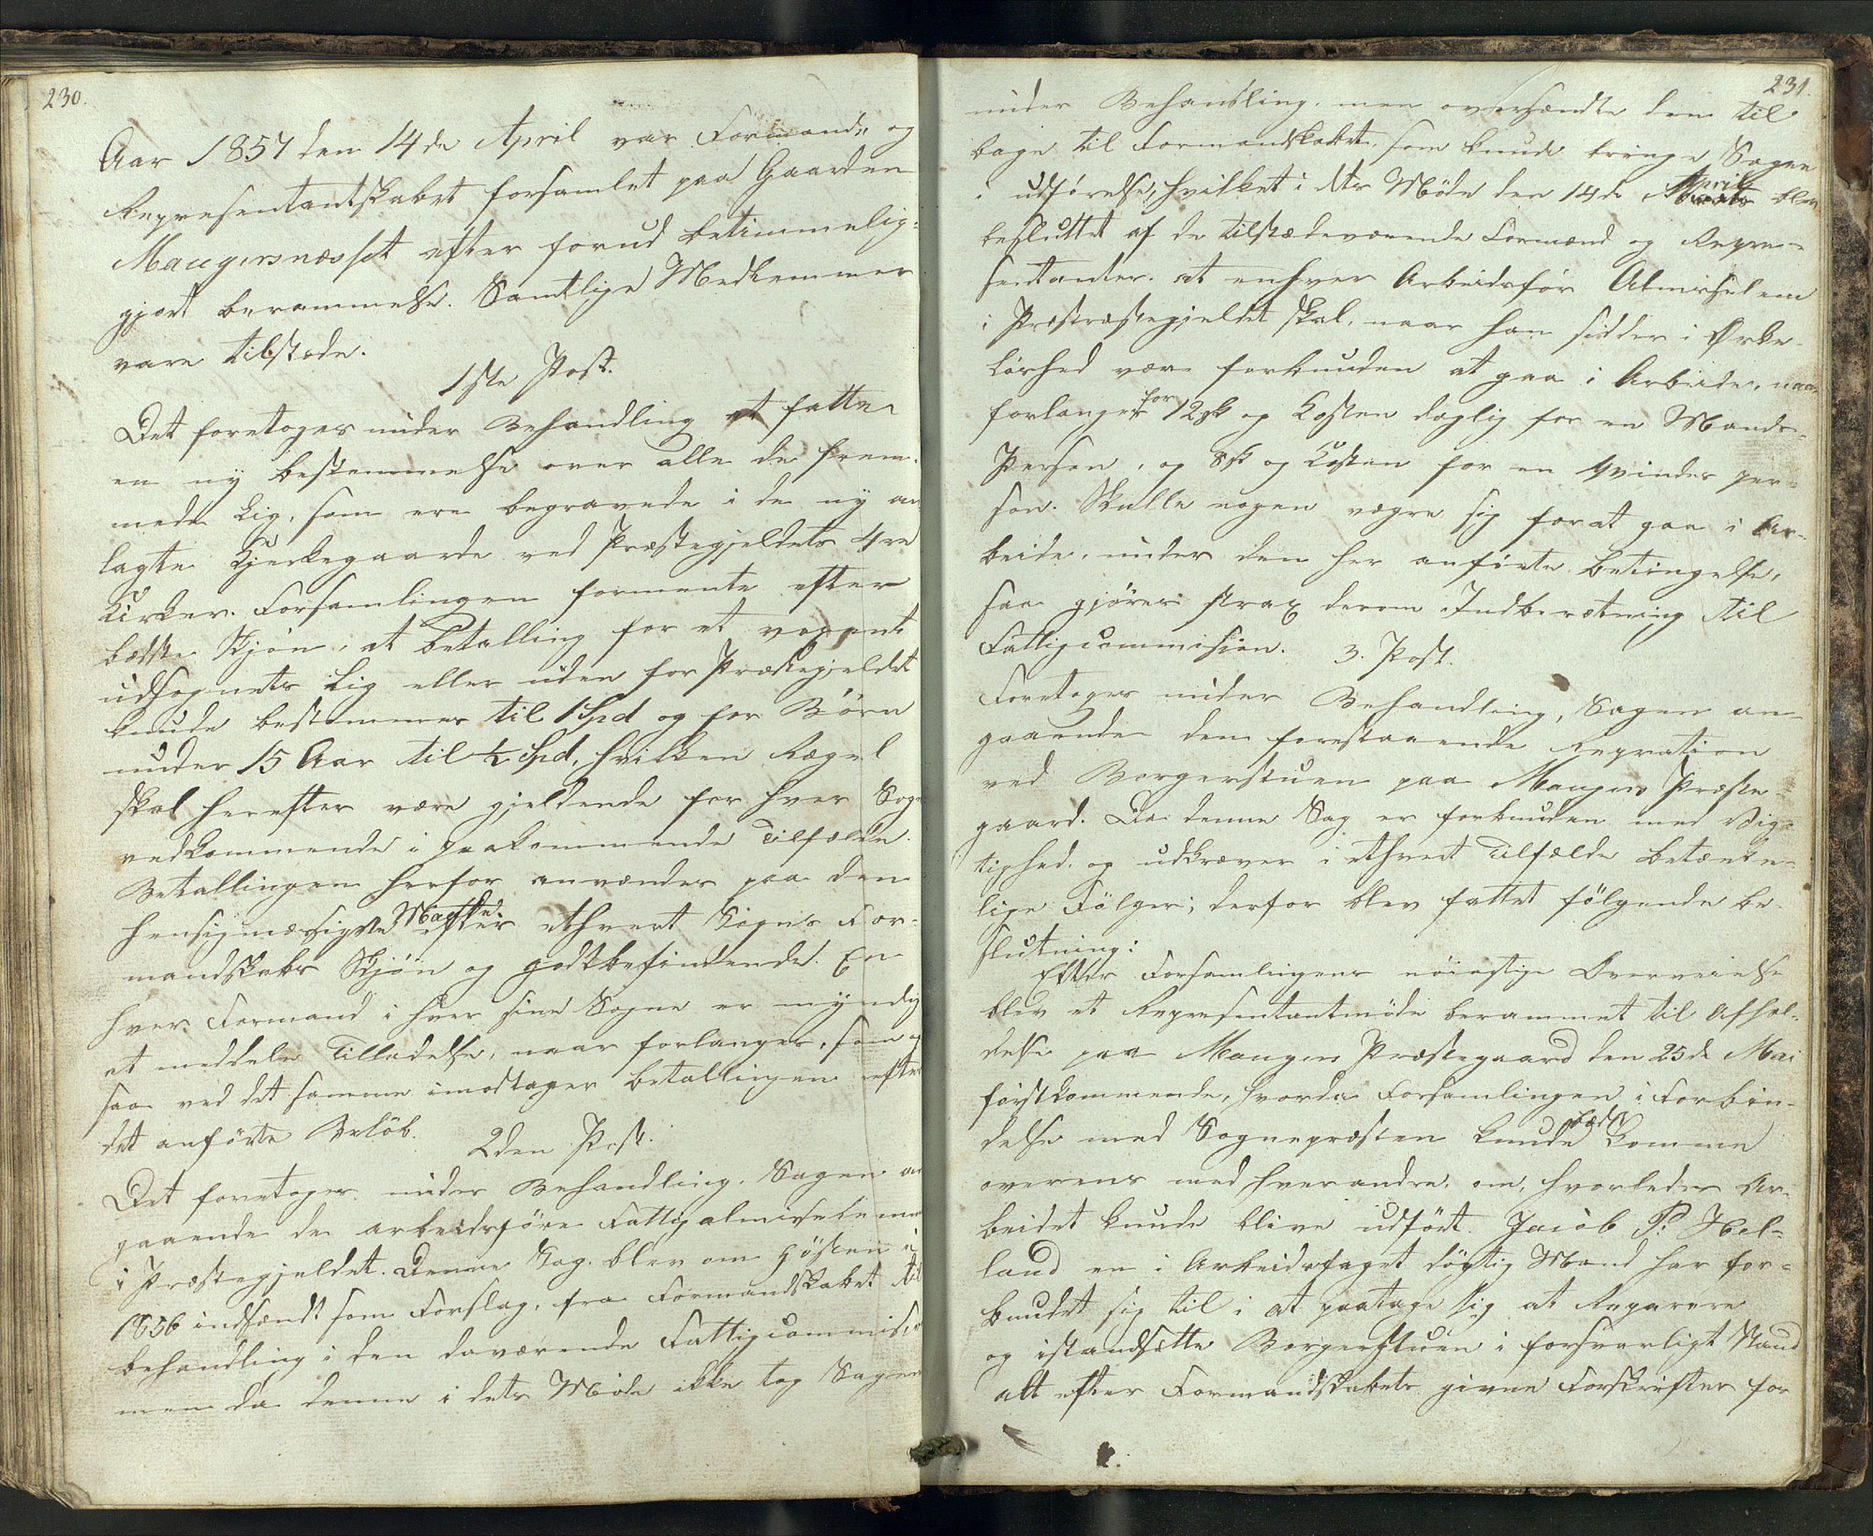 230.
Aar 1857 den 14de April var Formands og
Representantskabet forsamlet paa Gaarden
Maugersnæsset efter forud betimmelig-
gjort berammelse. Samtlige Medlemmer
vare tilstede.
1ste Post.
Det foretoges under Behandling at fatte
en ny bestemmelse over alle de frem-
mede Lig, som ere begravede i de ny an
lagte Kjerkegaarde ved Præstegjeldets 4re
Kirker. Forsamlingen formente efter
bedste Skjøn, at betalling for et
udsognets Lig eller uden for Præstegjeldet
kunde bestemmes til 1 Spd og for Børn
under 15 Aar til ½ Spd, hvilken Regel
skal herefter være gjeldende for hver Sogn
vedkommende i paakommende Tilfælde.
Betallingen herfor anvendes paa den
hensigmæsigste Maade efter ethvert Sogns For-
mandskabs Skjøn og godtbefindende. En
hver Formand i hver sine Sogne er myndig
at meddele Tilladelse, naar forlanges, som og
saa ved det samme imodtager betallingen efter
det anførte Beløb.
2den Post.
Det foretoges under Behandling. Sagen an
gaaende de arbeidsføre Fattigalmisselemmer
i Præstegjeldet. Denne Sag blev om Høsten i
1856 indsendt som Forslag, fra Formandskabet til
behandling i den daværende Fattigcommision
men da denne i dets Møde ikke tog Sagen
231.
under Behandling. men oversendte dem til
bage til Formandskabet, som kunde bringe Sagen
i udførelse, hvilket i dets Møde den 14de April blev
besluttet af de tilstedeværende Formænd og Repre-
sentanter. at enhver Arbeidsfør Almiselem
i Præstegjeldet skal, naar han sidder i Ørke-
løshed være forbunden at gaa i Arbeide, naar
forlanges for 12 sk og Kosten daglig for en Mands-
Person, og 8 sk og Kosten for en Qvindes per-
son. Skulle nogen vægre sig for at gaa i Ar-
beide, under den her anførte betingelse,
saa gjøres strax derom Indberetning til
Fattigcommision.
3. Post.
Foretoges under Behandling, Sagen an-
gaaende den forestaaende Repration
ved Borgerstuen paa Mangers Præste-
gaard. Da denne Sag er forbunden med Vig-
tighed. og udkræver i ethvert Tilfælde betænke-
lige Følger; derfor blev fattet følgende be-
slutning:
Efter Forsamlingens nøiagtige Overveielse
blev et Representantmøde berammet til Afhol-
delse paa Mangers Præstegaard den 25de Mai
førstkommende, hvorda Forsamlingen i Forbin-
delse med Sognepræsten kunde bedst komme
overens med hverandre, om, hvorledes Ar-
beidet kunde blive udført. Jacob P. Hol-
land en i Arbeidsfaget dygtig Mand har for-
bundet sig til i at paatage sig at Reparere
og istandsette Borgerstuen i forsvarligt Stand
alt efter Formandskabets givne Forskrifter for